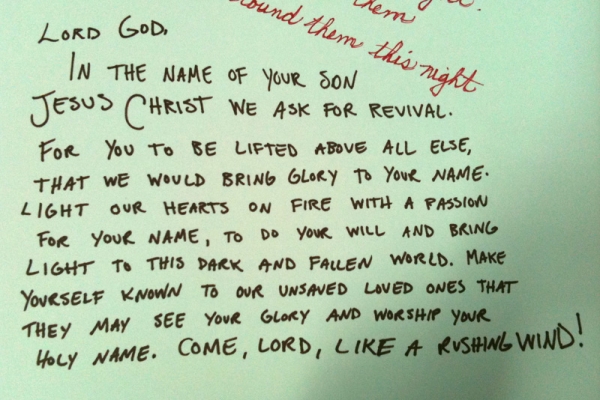 them
around them this night
LORD GOD,
IN THE NAME OF YOUR SON
JESUS CHRIST WE ASK FOR REVIVAL.
FOR YOU TO BE LIFTED ABOVE ALL ELSE,
THAT WE WOULD BRING GLORY TO YOUR NAME.
LIGHT OUR HEARTS ON FIRE WITH A PASSION
FOR YOUR NAME, TO DO YOUR WILL AND BRING
LIGHT TO THIS DARK AND FALLEN WORLD. MAKE
YOURSELF KNOWN TO OUR UNSAVED LOVED ONES THAT
THEY MAY SEE YOUR GLORY AND WORSHIP YOUR
HOLY NAME. COME, LORD, LIKE A RUSHING WIND!